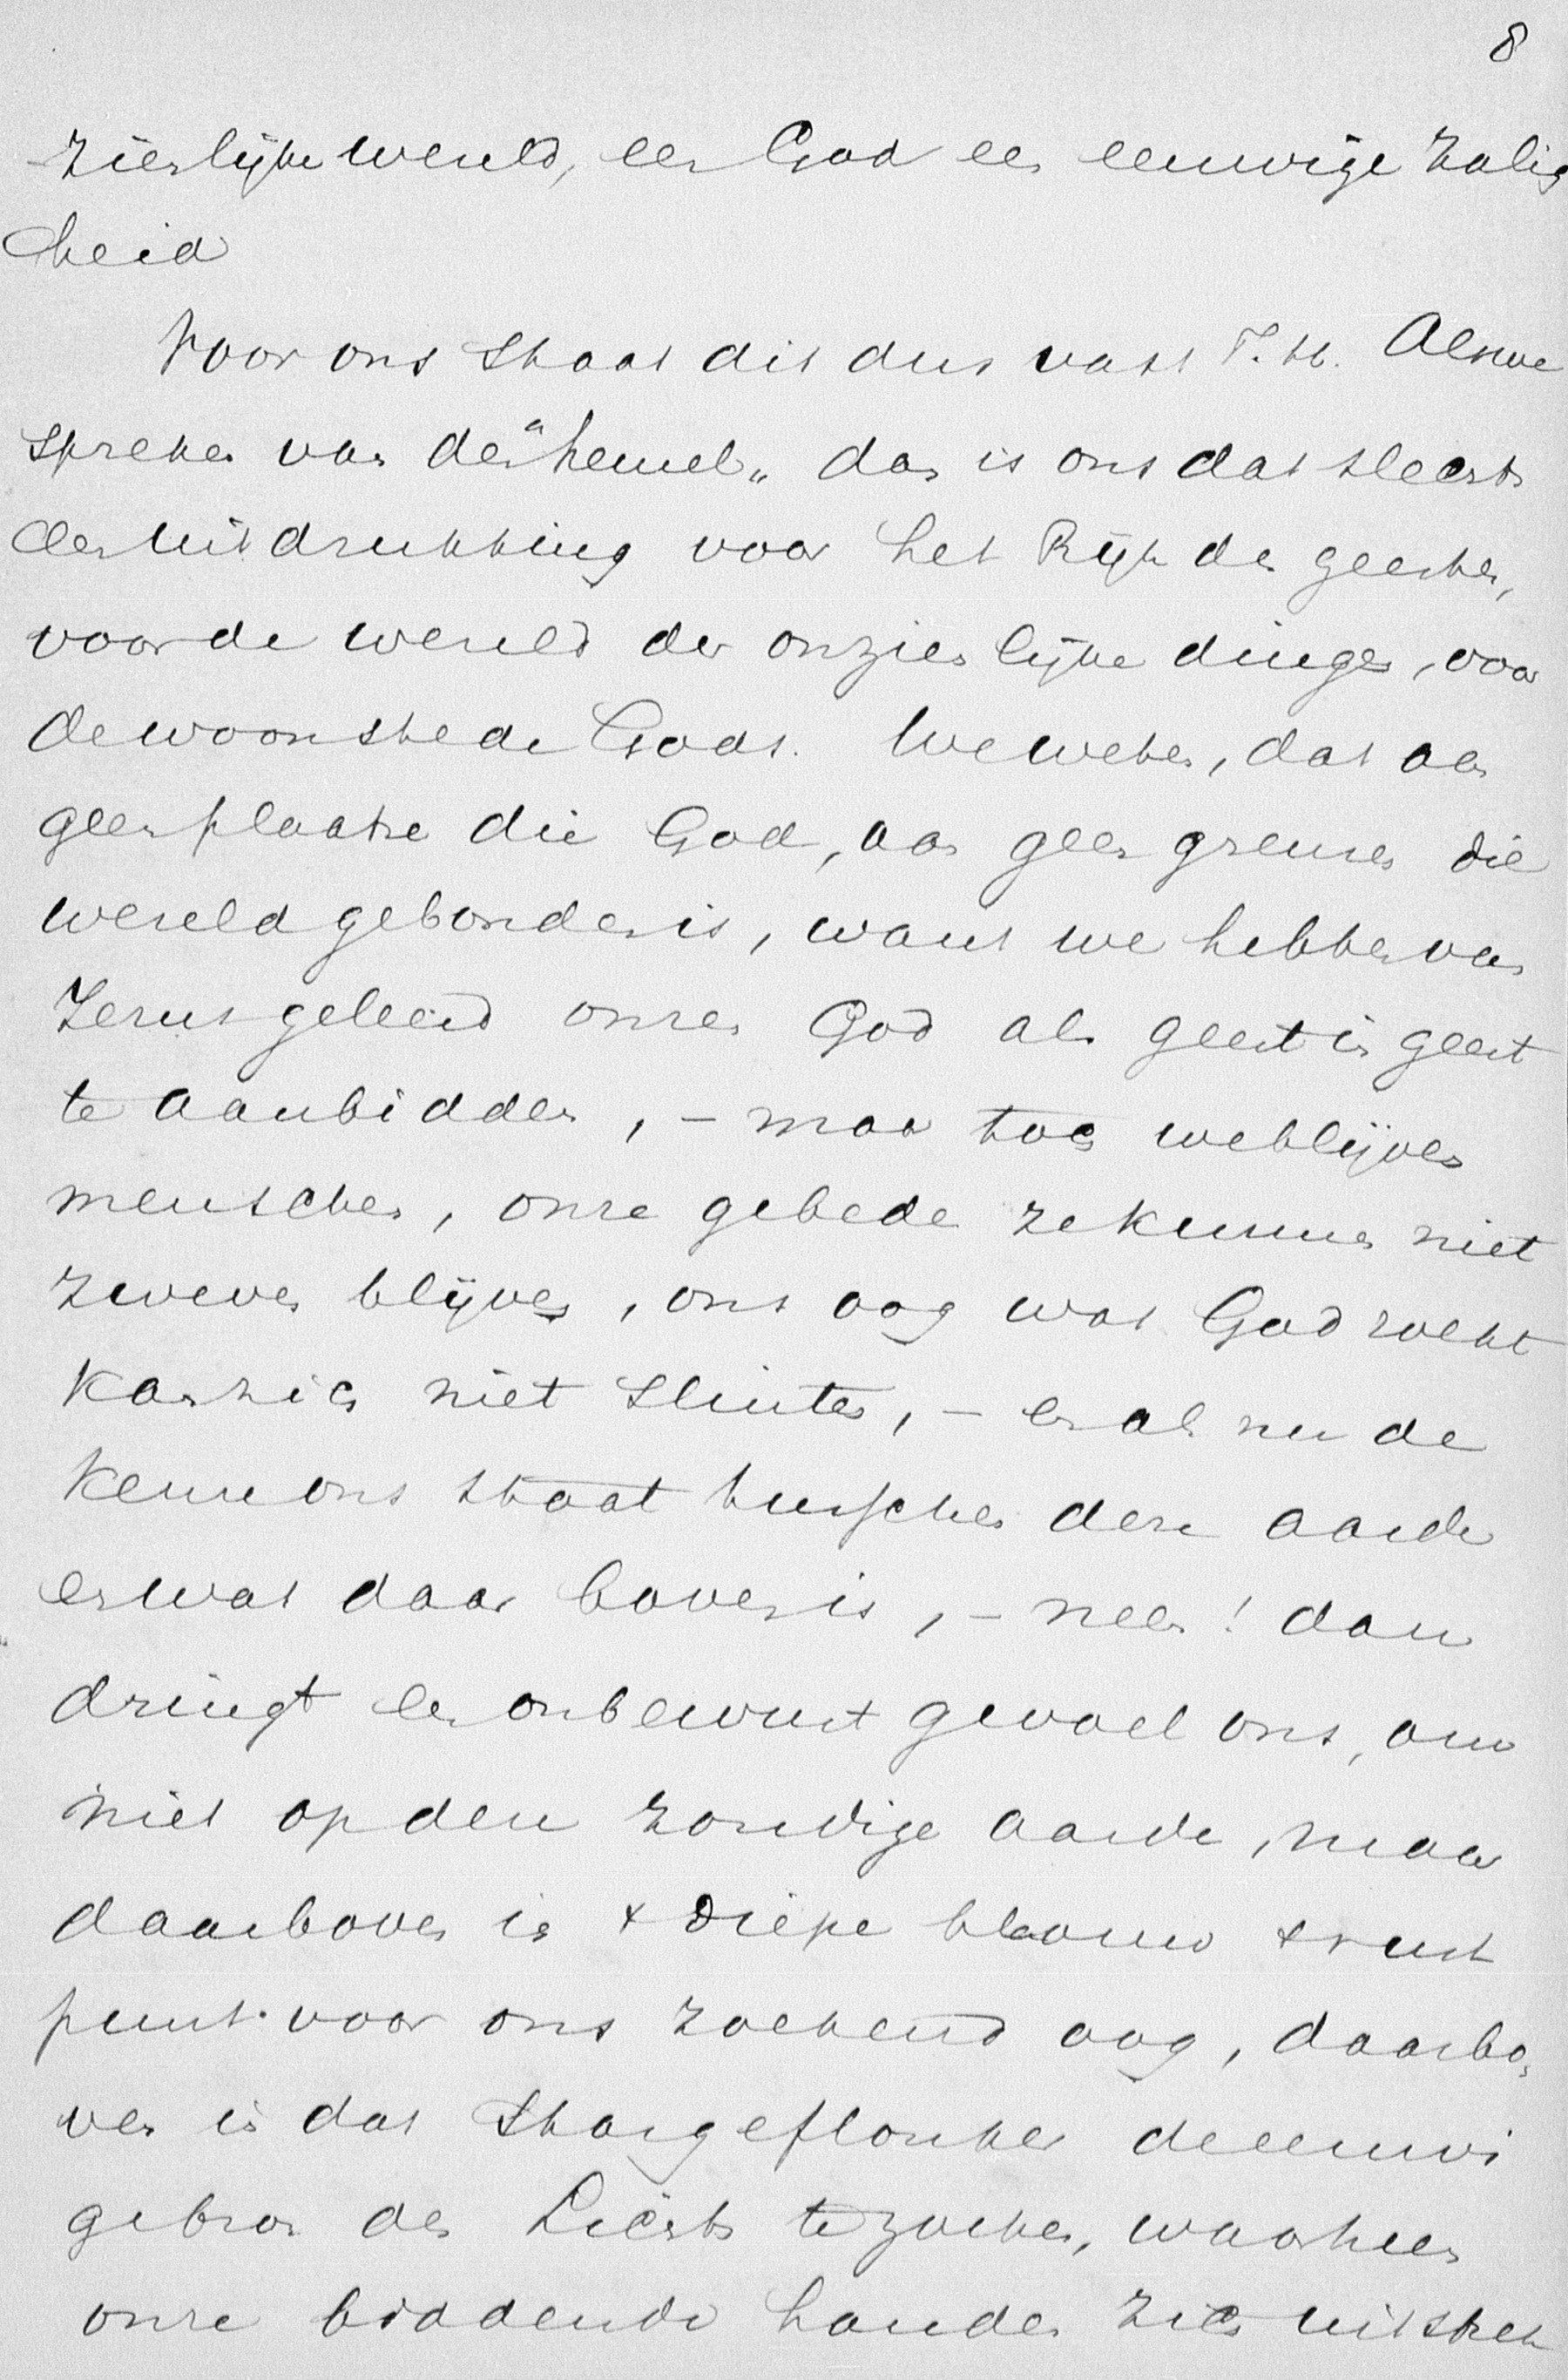 8
zienlijke wereld, een God een eeuwige Zalig
heid
Voor ons staat dit dus vast T. H. Als we
spreken van den "hemel„ dan is ons dat slechts
een uitdrukking voor het Rijk der geesten,
voor de wereld der onzienlijke dingen, voor
de woonstede Gods. We weten, dat aan
geen plaatse die God, aan geen grenzen die
wereld gebonden is, want we hebben van
Jezus geleerd onzen God als geest in geest
te aanbidden, – maar toch we blijven
menschen, onze gebeden ze kunnen niet
zweven blijven, ons oog wat God zoekt
kan zich niet sluiten, – en als nu de
keuze ons staat tusschen deze aarde
en wat daar boven is, – neen! dan
dringt een onbewust gevoel ons, om
niet op deze zondige aarde, maar
daarboven in 't diepe blaauw 't rust
punt voor ons zoekend oog, daarbo,
ven in dat stargeflonker de eeuwi
ge bron des Lichts te zoeken, waarheen
onze biddende handen zich uitstrek